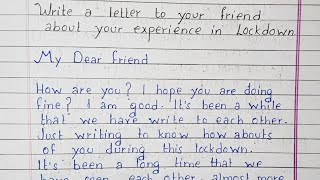 Write a letter to your friend
about your experience in Lockdown.
My Dear friend
How are you? I hope you are doing
fine? I am good. It's been a while
that we have write to each other.
Just writing to know how abouts
of you during this lockdown.
It's been a long time that we
have seen each other almost more